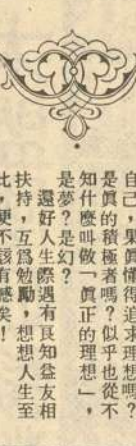 自己，果眞懂得追求理想嗎？
是眞的積極者嗎？似乎也從不
知什麼叫做「眞正的理想」，
是夢？是幻？
還好人生際遇有良知益友相
扶持，互爲勉勵，想想人生至
此，更不該有憾矣！